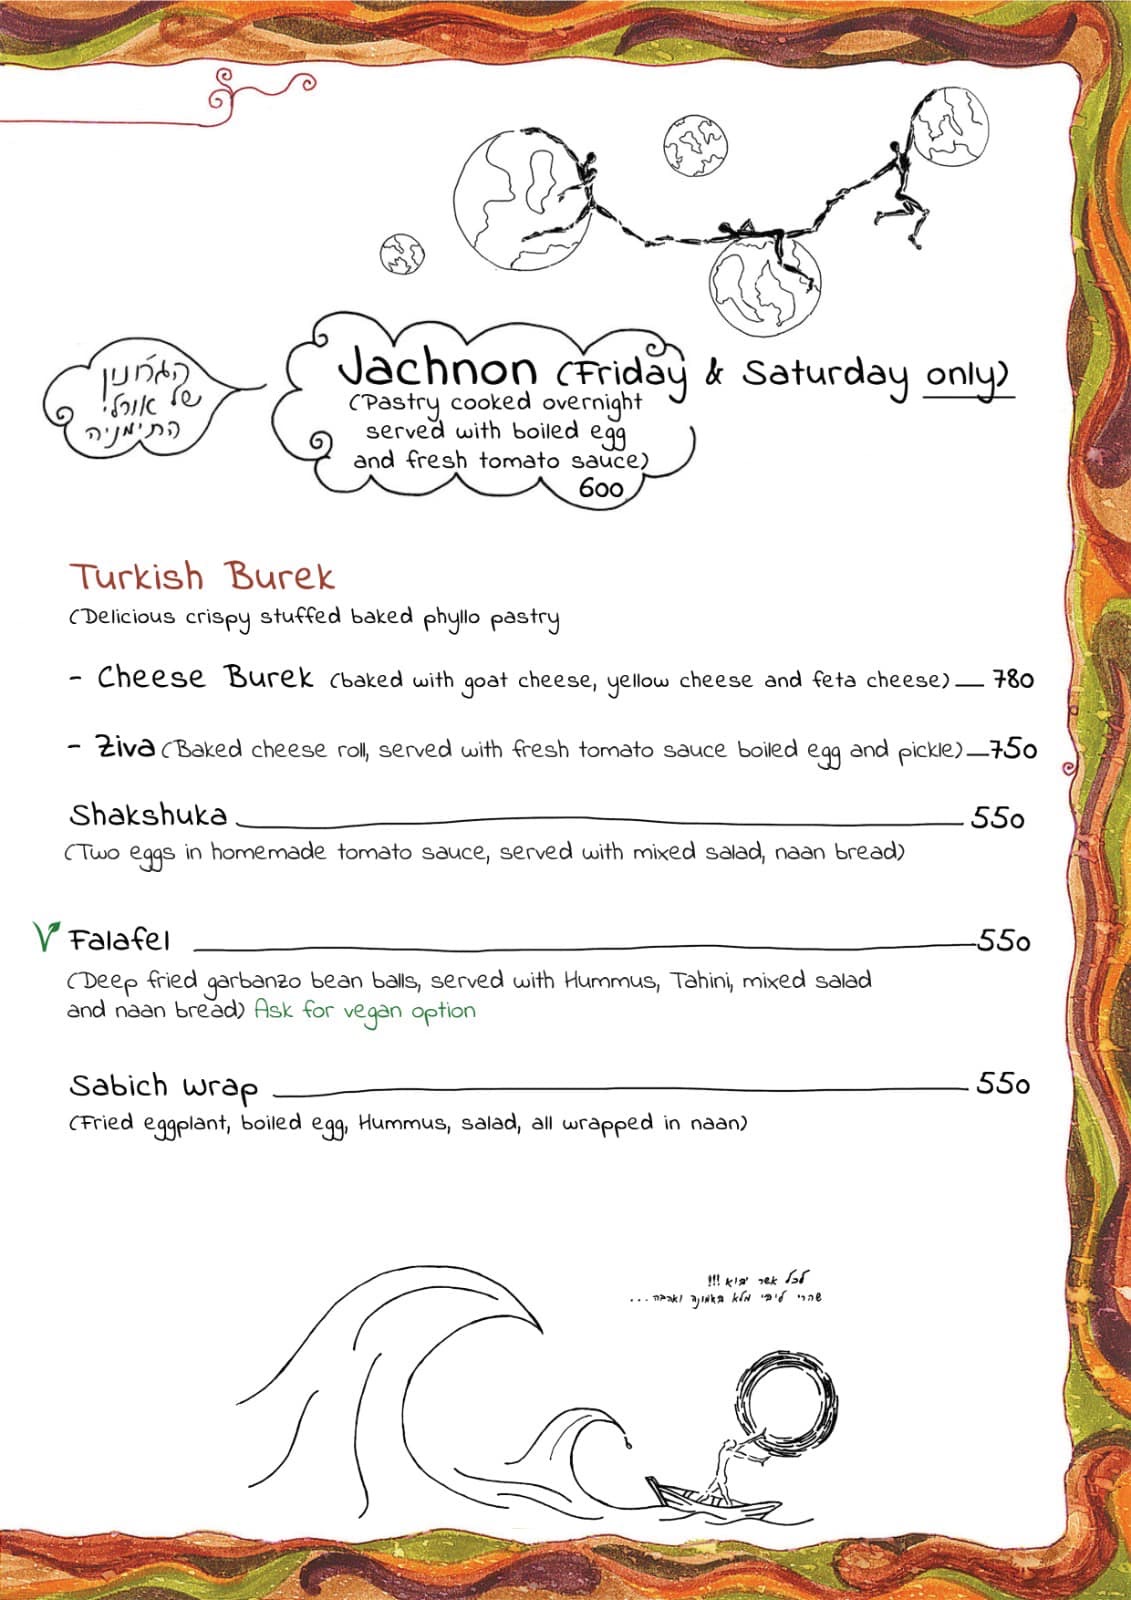 הג'חנון
של אורלי
התימניה
Jachnon (Friday & Saturday only)
(Pastry cooked overnight
served with boiled egg
and fresh tomato sauce)
600
Turkish Burek
(Delicious crispy stuffed baked phyllo pastry
- Cheese Burek (baked with goat cheese, yellow cheese and feta cheese) 780
- Ziva (Baked cheese roll, served with fresh tomato sauce boiled egg and pickle) 750
Shakshuka 550
(Two eggs in homemade tomato sauce, served with mixed salad, naan bread)
V Falafel 550
(Deep fried garbanzo bean balls, served with Hummus, Tahini, mixed salad
and naan bread) Ask for vegan option
Sabich wrap 550
(Fried eggplant, boiled egg, Hummus, salad, all wrapped in naan)
לכל אשר יבוא !!!
שהרי ליבי מלא באמונה ואהבה...